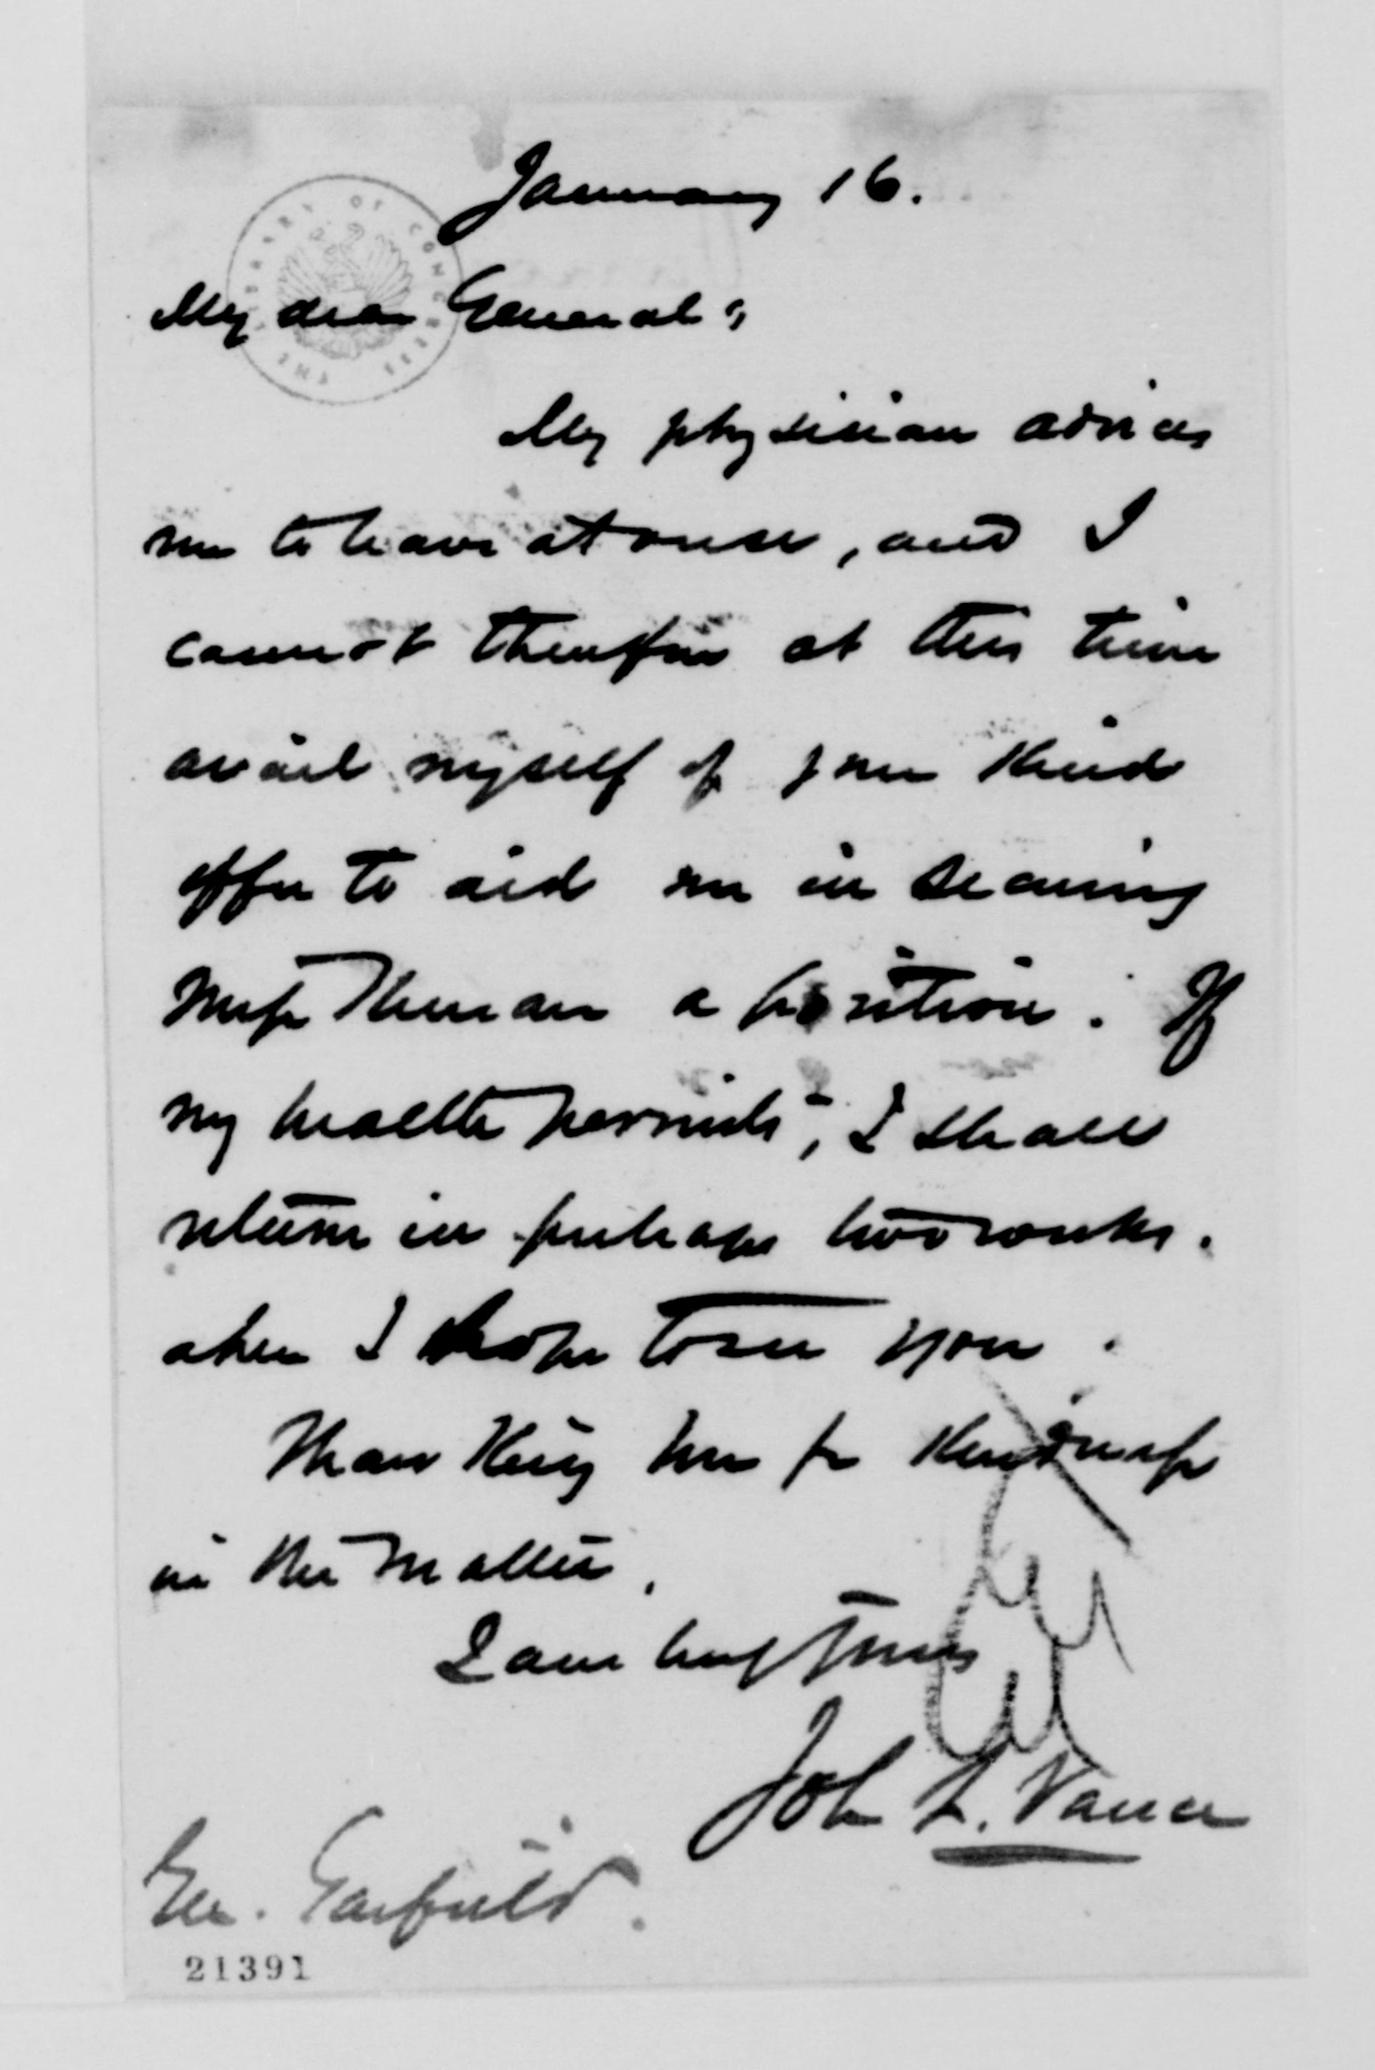 January 16.
THE LIBRARY OF CONGRESS
My dear General;
My physician advises
me to leave at once, and I
cannot therefore at this time
avail myself of your kind
offer to aid me in securing
Miss Thurman a position. If
my health permits, I shall
return in perhaps two weeks.
when I hope to see you.
Thanking you for kindness
in the matter,
I am truly yours
John L. Vance
Gen. Garfield.
21391